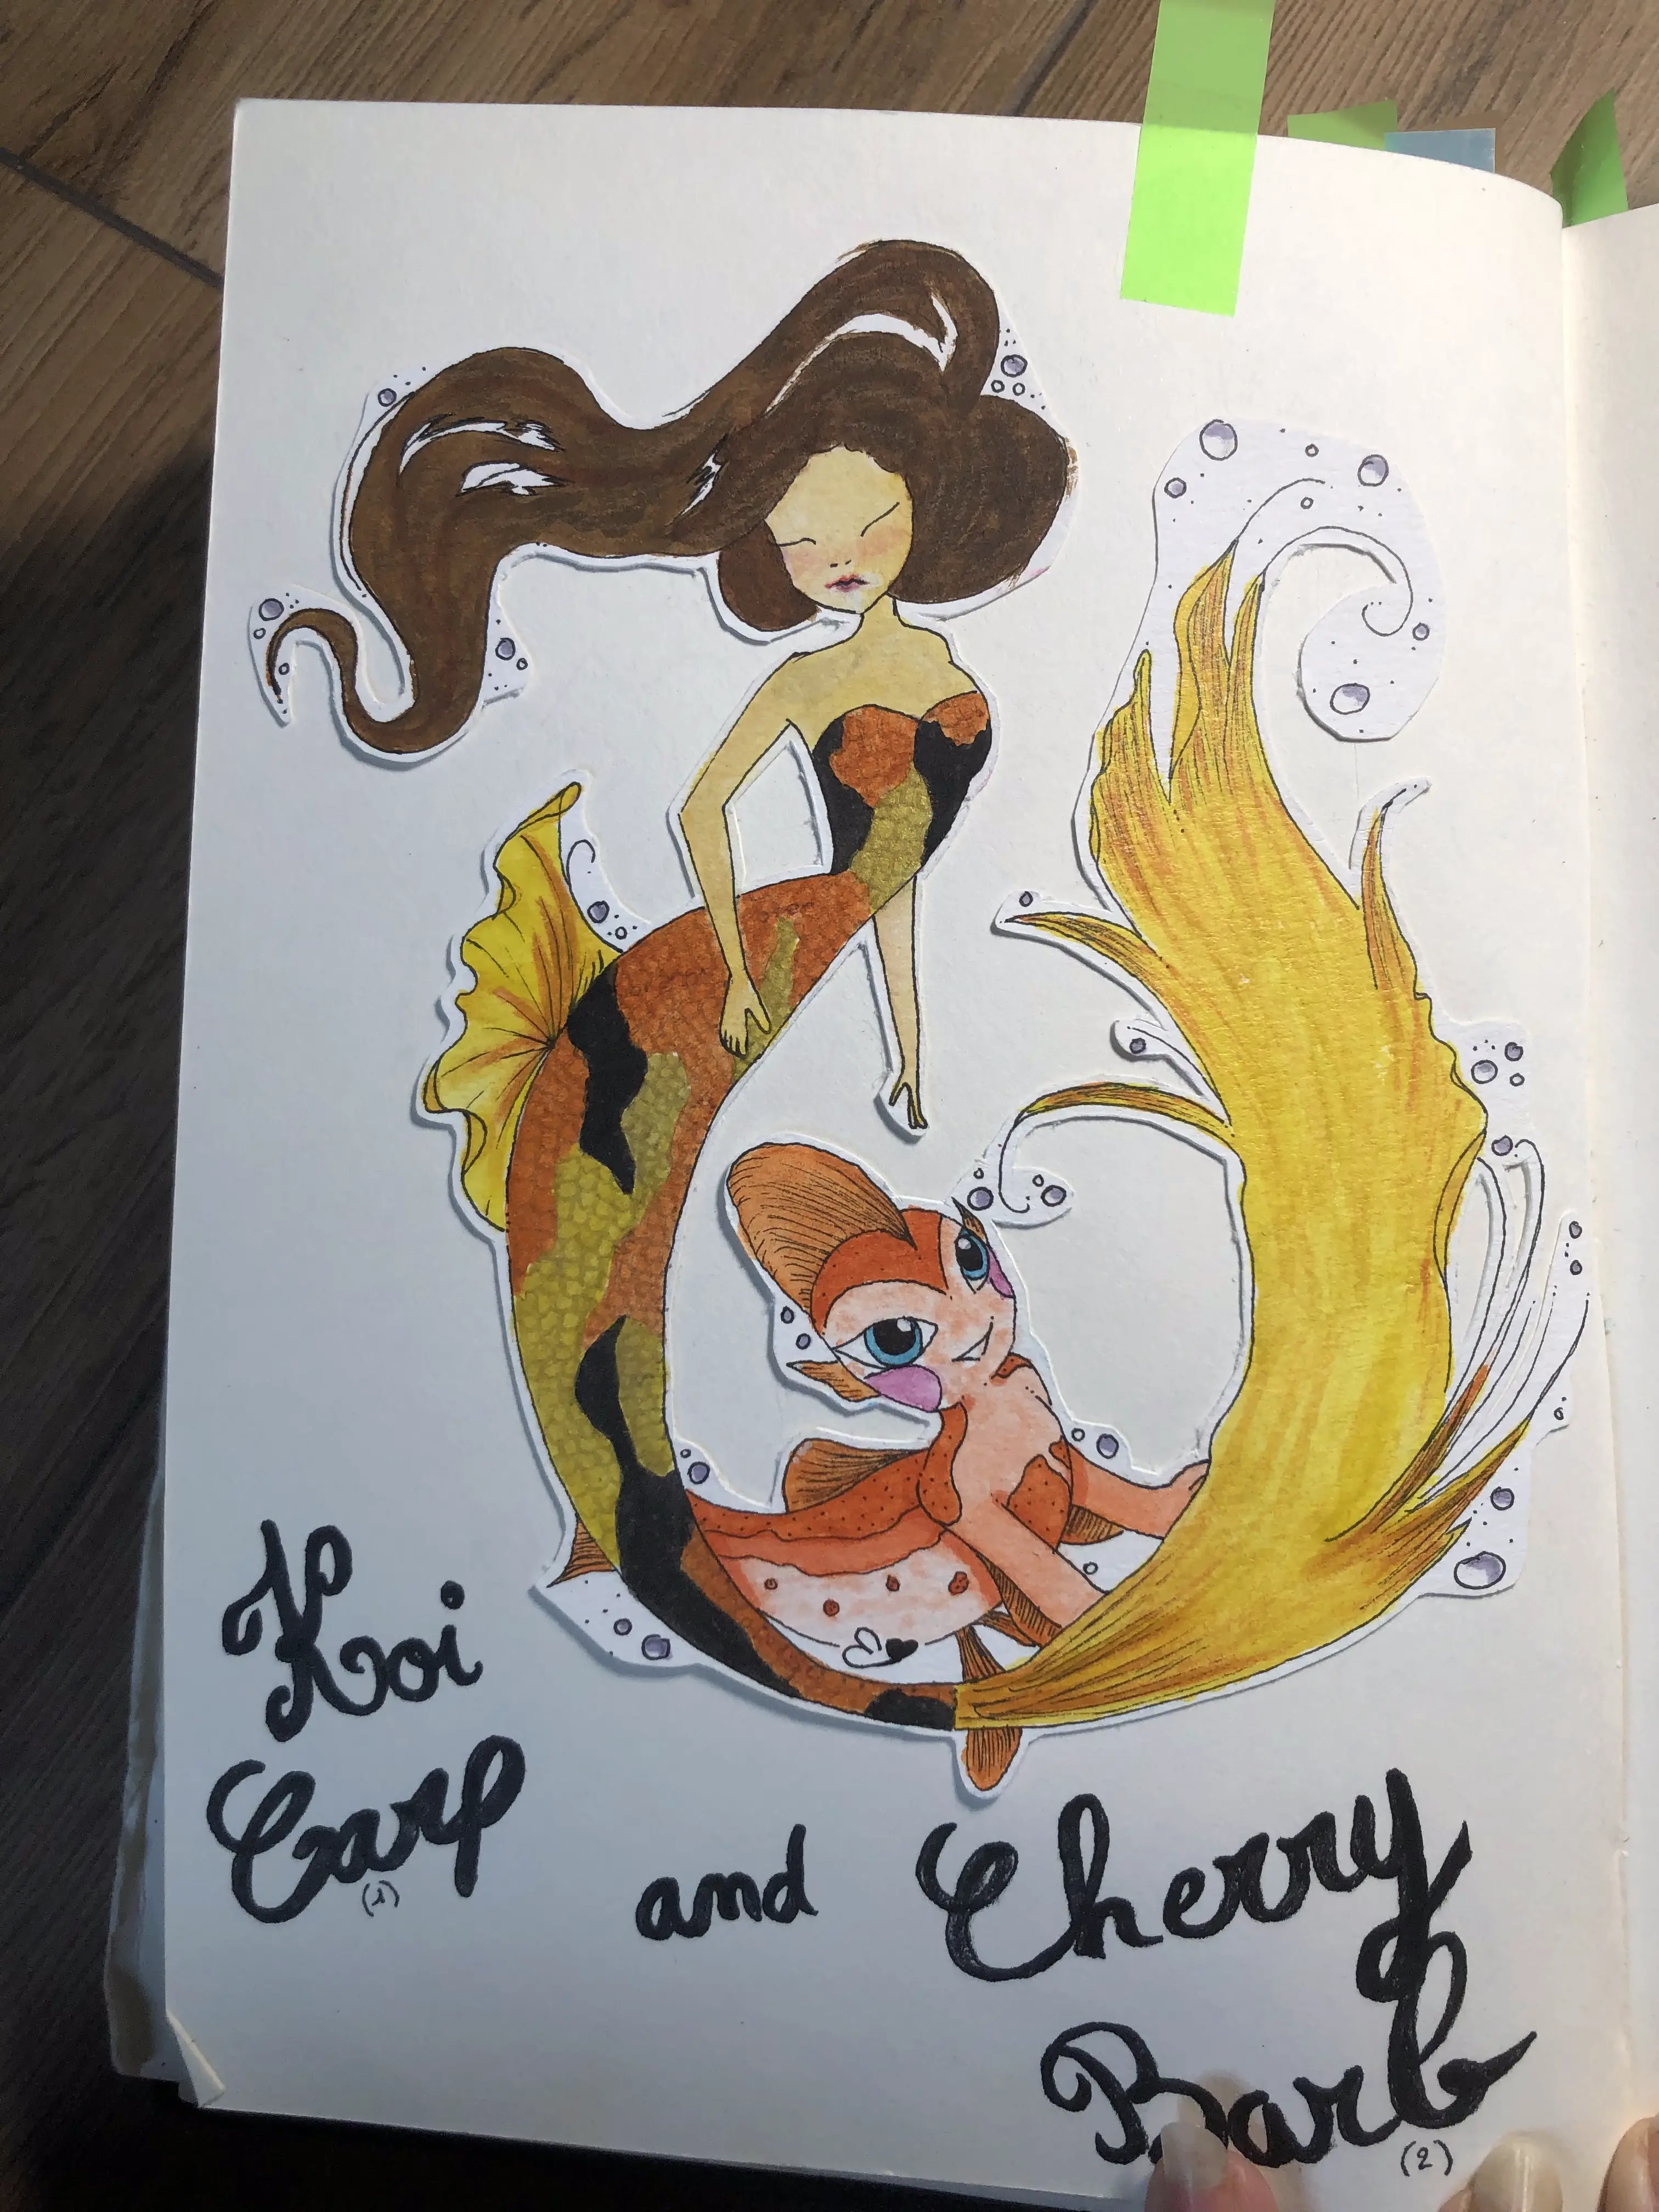 Koi
Carp
(1)
and Cherry
Barb
(2)